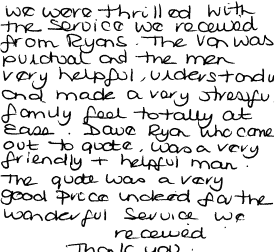 we were thrilled with
the service we received
from Ryans. The van was
punctual and the men
very helpful, understandi
and made a very stressfu
family feel totally at
ease. Dave Ryan who came
out to quote, was a very
friendly + helpful man.
The quote was a very
good price indeed for the
wonderful service we
received.
Thank you.